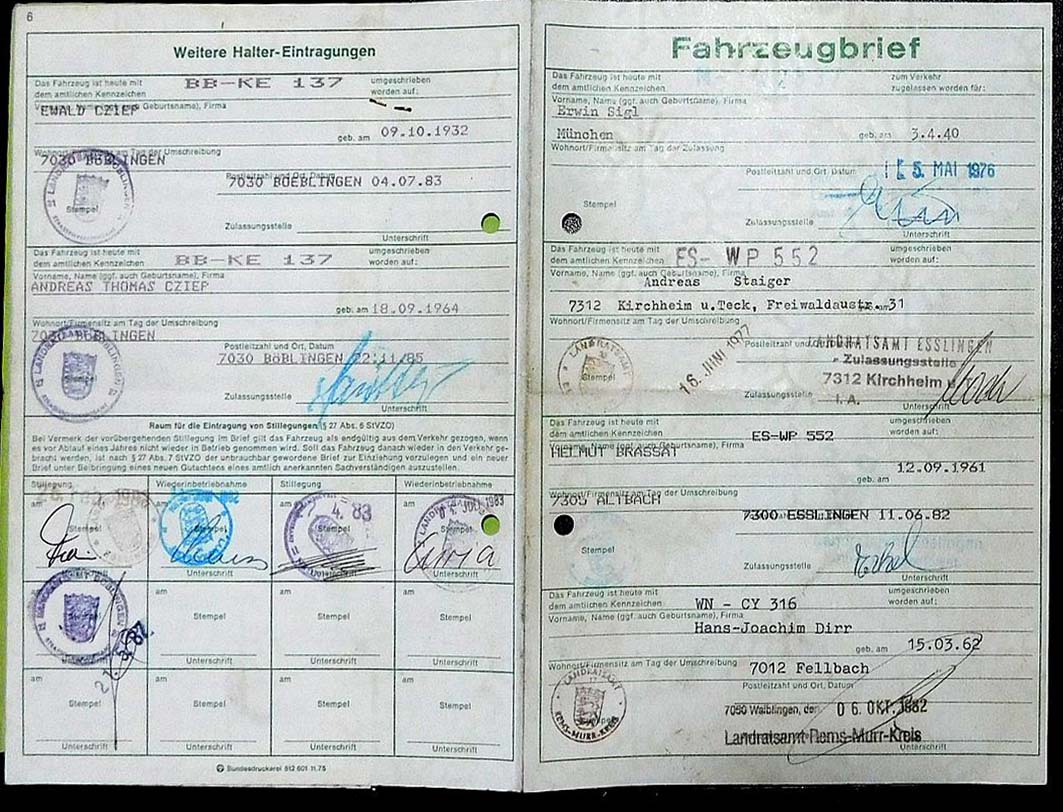 6
Weitere Halter-Eintragungen
Das Fahrzeug ist heute mit
dem amtlichen Kennzeichen
BB-KE 137
umgeschrieben
worden auf:
Vorname, Name (ggf. auch Geburtsname), Firma
EWALD CZIEP
geb. am 09.10.1932
Wohnort/Firmensitz am Tag der Umschreibung
7030 BöBLINGEN
Postleitzahl und Ort, Datum
7030 BOEBLINGEN 04.07.83
Stempel
Zulassungsstelle
Unterschrift
Das Fahrzeug ist heute mit
dem amtlichen Kennzeichen
BB-KE 137
umgeschrieben
worden auf:
Vorname, Name (ggf. auch Geburtsname), Firma
ANDREAS THOMAS CZIEP
geb. am 18.09.1964
Wohnort/Firmensitz am Tag der Umschreibung
7030 BöBLINGEN
Postleitzahl und Ort, Datum
7030 BöBLINGEN 22.11.85
Zulassungsstelle
Unterschrift
Raum für die Eintragung von Stillegungen (§ 27 Abs. 6 StVZO)
Bei Vermerk der vorübergehenden Stillegung im Brief gilt das Fahrzeug als endgültig aus dem Verkehr gezogen, wenn
es vor Ablauf eines Jahres nicht wieder in Betrieb genommen wird. Soll das Fahrzeug danach wieder in den Verkehr ge-
bracht werden, ist nach § 27 Abs. 7 StVZO der unbrauchbar gewordene Brief zur Einziehung vorzulegen und ein neuer
Brief unter Beibringung eines neuen Gutachtens eines amtlich anerkannten Sachverständigen auszustellen.
Stillegung Wiederinbetriebnahme Stillegung Wiederinbetriebnahme
am am am am
Stempel Stempel Stempel Stempel
4. 83
1983
Unterschrift Unterschrift Unterschrift Unterschrift
am am am
Stempel Stempel Stempel
Unterschrift Unterschrift Unterschrift
am am am am
Stempel Stempel Stempel Stempel
Unterschrift Unterschrift Unterschrift Unterschrift
Bundesdruckerei 812 601 11.75
Fahrzeugbrief
Das Fahrzeug ist heute mit
dem amtlichen Kennzeichen
zum Verkehr
zugelassen worden für:
Vorname, Name (ggf. auch Geburtsname), Firma
Erwin Sigl
München
geb. am 3.4.40
Wohnort/Firmensitz am Tag der Zulassung
Postleitzahl und Ort, Datum
5. MAI 1976
Stempel
Zulassungsstelle
Unterschrift
Das Fahrzeug ist heute mit
dem amtlichen Kennzeichen
ES-WP 552
umgeschrieben
worden auf:
Vorname, Name (ggf. auch Geburtsname), Firma
Andreas Staiger
7312 Kirchheim u.Teck, Freiwaldaustr. 31
Wohnort/Firmensitz am Tag der Umschreibung
16. JUNI 1977
LANDRATSAMT ESSLINGEN
- Zulassungsstelle
7312 Kirchheim u. T.
I. A.
LANDRATSAMT
Stempel
Zulassungsstelle
Unterschrift
Das Fahrzeug ist heute mit
dem amtlichen Kennzeichen
ES-WP 552
umgeschrieben
worden auf:
Vorname, Name (ggf. auch Geburtsname), Firma
HELMUT BRASSAT
12.09.1961
geb. am
Wohnort/Firmensitz am Tag der Umschreibung
7305 ALTBACH
7300 ESSLINGEN 11.06.82
Stempel
Zulassungsstelle
Unterschrift
Das Fahrzeug ist heute mit
dem amtlichen Kennzeichen
WN - CY 316
umgeschrieben
worden auf:
Vorname, Name (ggf. auch Geburtsname), Firma
Hans-Joachim Dirr
geb. am 15.03.62
Wohnort/Firmensitz am Tag der Umschreibung
7012 Fellbach
Postleitzahl und Ort, Datum
7050 Waiblingen, den 06. OKT. 1982
Landratsamt Rems-Murr-Kreis
LANDRATSAMT
REMS-MURR-KREIS
Unterschrift